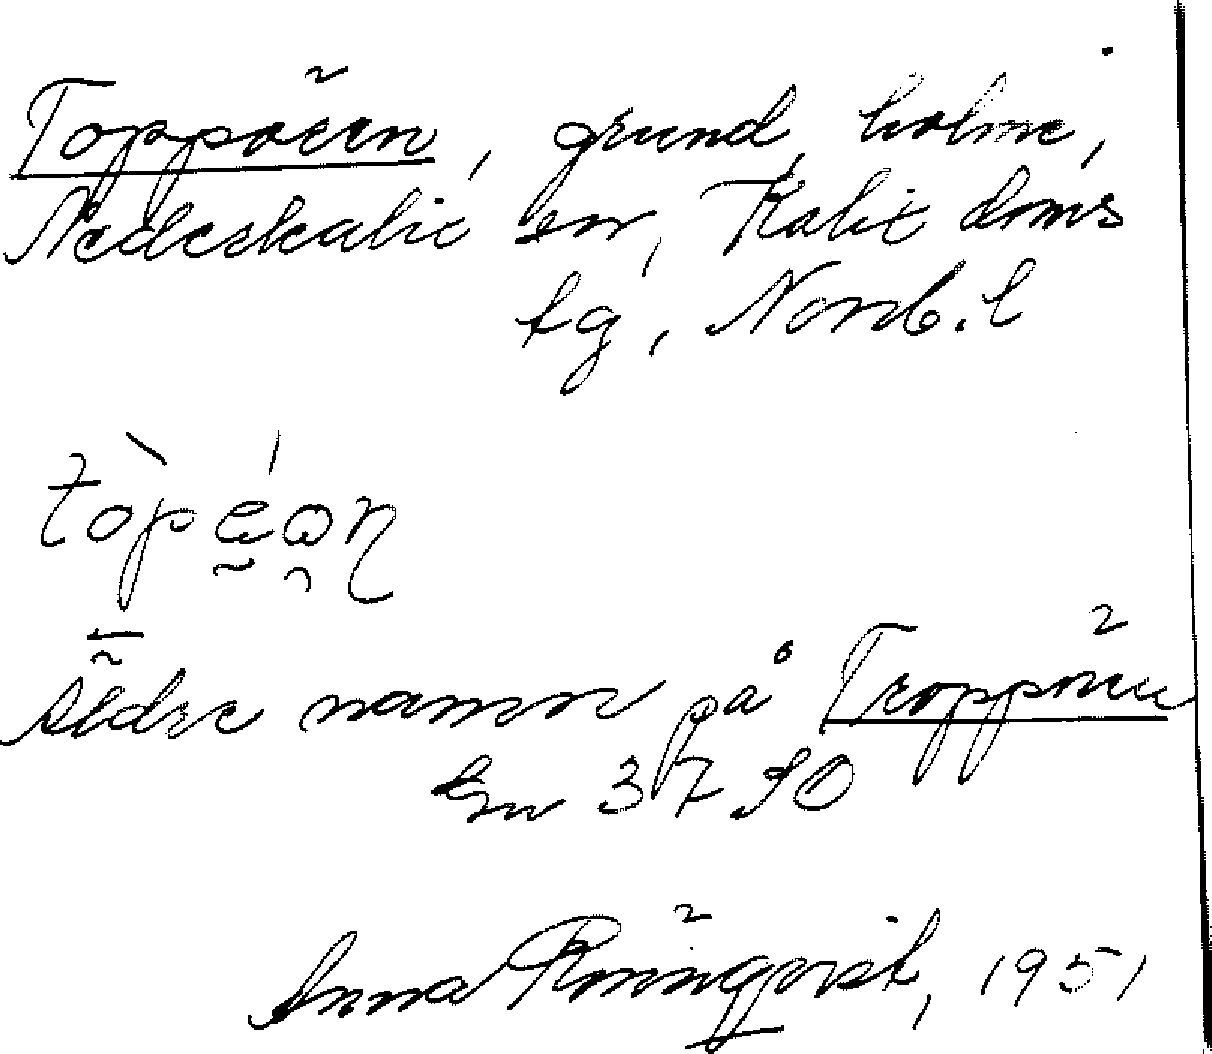 Toppöarn, grund, holme,
Nederkalix sn, Kalix doms
tg, Norrb. l
Äldre namn på Troppöarn
Gu 3790
Anna Rönnqvist, 1951